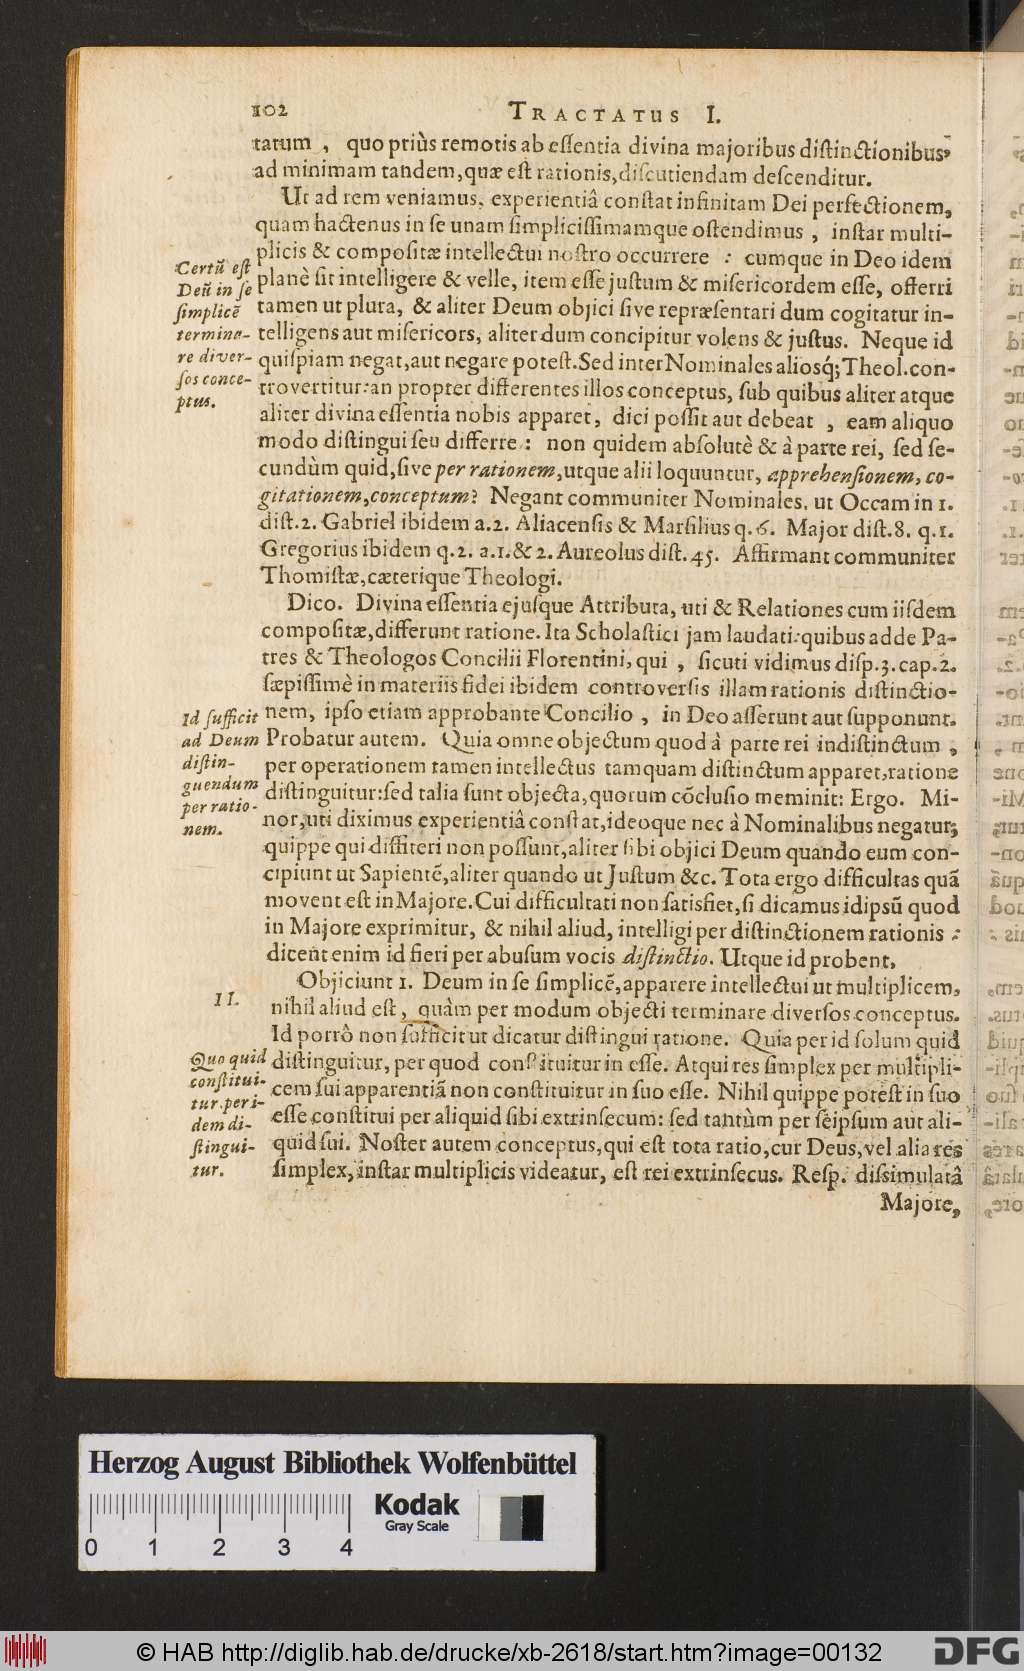 102 TRACTATUS I.
tatum , quo priùs remotis ab eſſentia divina majoribus diſtinctionibus,
ad minimam tandem, quæ eſt rationis, diſcutiendam deſcenditur.
Ut ad rem veniamus, experientiâ conſtat infinitam Dei perfectionem,
quam hactenus in ſe unam ſimpliciſſimamque oſtendimus , inſtar multi-
plicis & compoſitæ intellectui noſtro occurrere : cumque in Deo idem
planè ſit intelligere & velle, item eſſe juſtum & miſericordem eſſe, offerri
tamen ut plura, & aliter Deum objici ſive repræſentari dum cogitatur in-
telligens aut miſericors, aliter dum concipitur volens & juſtus. Neque id
quiſpiam negat, aut negare poteſt. Sed inter Nominales aliosq́; Theol. con-
trovertitur: an propter differentes illos conceptus, ſub quibus aliter atque
aliter divina eſſentia nobis apparet, dici poſſit aut debeat , eam aliquo
modo diſtingui ſeu differre : non quidem abſolutè & à parte rei, ſed ſe-
cundùm quid, ſive per rationem, utque alii loquuntur, apprehenſionem, co-
gitationem, conceptum? Negant communiter Nominales, ut Occam in 1.
diſt. 2. Gabriel ibidem a. 2. Aliacenſis & Marſilius q. 6. Major diſt. 8. q. 1.
Gregorius ibidem q. 2. a. 1. & 2. Aureolus diſt. 45. Affirmant communiter
Thomiſtæ, cæterique Theologi.
Certũ eſt
Deũ in ſe
ſimplicẽ
termina-
re diver-
ſos conce-
ptus.
Dico. Divina eſſentia ejuſque Attributa, uti & Relationes cum iiſdem
compoſitæ, differunt ratione. Ita Scholaſtici jam laudati: quibus adde Pa-
tres & Theologos Concilii Florentini, qui , ſicuti vidimus diſp. 3. cap. 2.
ſæpiſſimè in materiis fidei ibidem controverſis illam rationis diſtinctio-
nem, ipſo etiam approbante Concilio , in Deo aſſerunt aut ſupponunt.
Probatur autem. Quia omne objectum quod à parte rei indiſtinctum ,
per operationem tamen intellectus tamquam diſtinctum apparet, ratione
diſtinguitur: ſed talia ſunt objecta, quorum cõcluſio meminit: Ergo. Mi-
nor, uti diximus experientiâ conſtat, ideoque nec à Nominalibus negatur;
quippe qui diffiteri non poſſunt, aliter ſibi objici Deum quando eum con-
cipiunt ut Sapientẽ, aliter quando ut Juſtum &c. Tota ergo difficultas quã
movent eſt in Majore. Cui difficultati non ſatisfiet, ſi dicamus idipſũ quod
in Majore exprimitur, & nihil aliud, intelligi per diſtinctionem rationis :
dicent enim id fieri per abuſum vocis diſtinctio. Utque id probent,
Id ſufficit
ad Deum
diſtin-
guendum
per ratio-
nem.
Objiciunt 1. Deum in ſe ſimplicẽ, apparere intellectui ut multiplicem,
nihil aliud eſt, quàm per modum objecti terminare diverſos conceptus.
Id porrò non ſufficit ut dicatur diſtingui ratione. Quia per id ſolum quid
diſtinguitur, per quod conſtituitur in eſſe. Atqui res ſimplex per multipli-
cem ſui apparentiã non conſtituitur in ſuo eſſe. Nihil quippe poteſt in ſuo
eſſe conſtitui per aliquid ſibi extrinſecum: ſed tantùm per ſeipſum aut ali-
quid ſui. Noſter autem conceptus, qui eſt tota ratio, cur Deus, vel alia res
ſimplex, inſtar multiplicis videatur, eſt rei extrinſecus. Reſp. diſſimulatâ
II.
Quo quid
conſtitui-
tur, per i-
dem di-
ſtingui-
tur.
Majore,
Herzog August Bibliothek Wolfenbüttel
Kodak
Gray Scale
0 1 2 3 4
© HAB http://diglib.hab.de/drucke/xb-2618/start.htm?image=00132
DFG